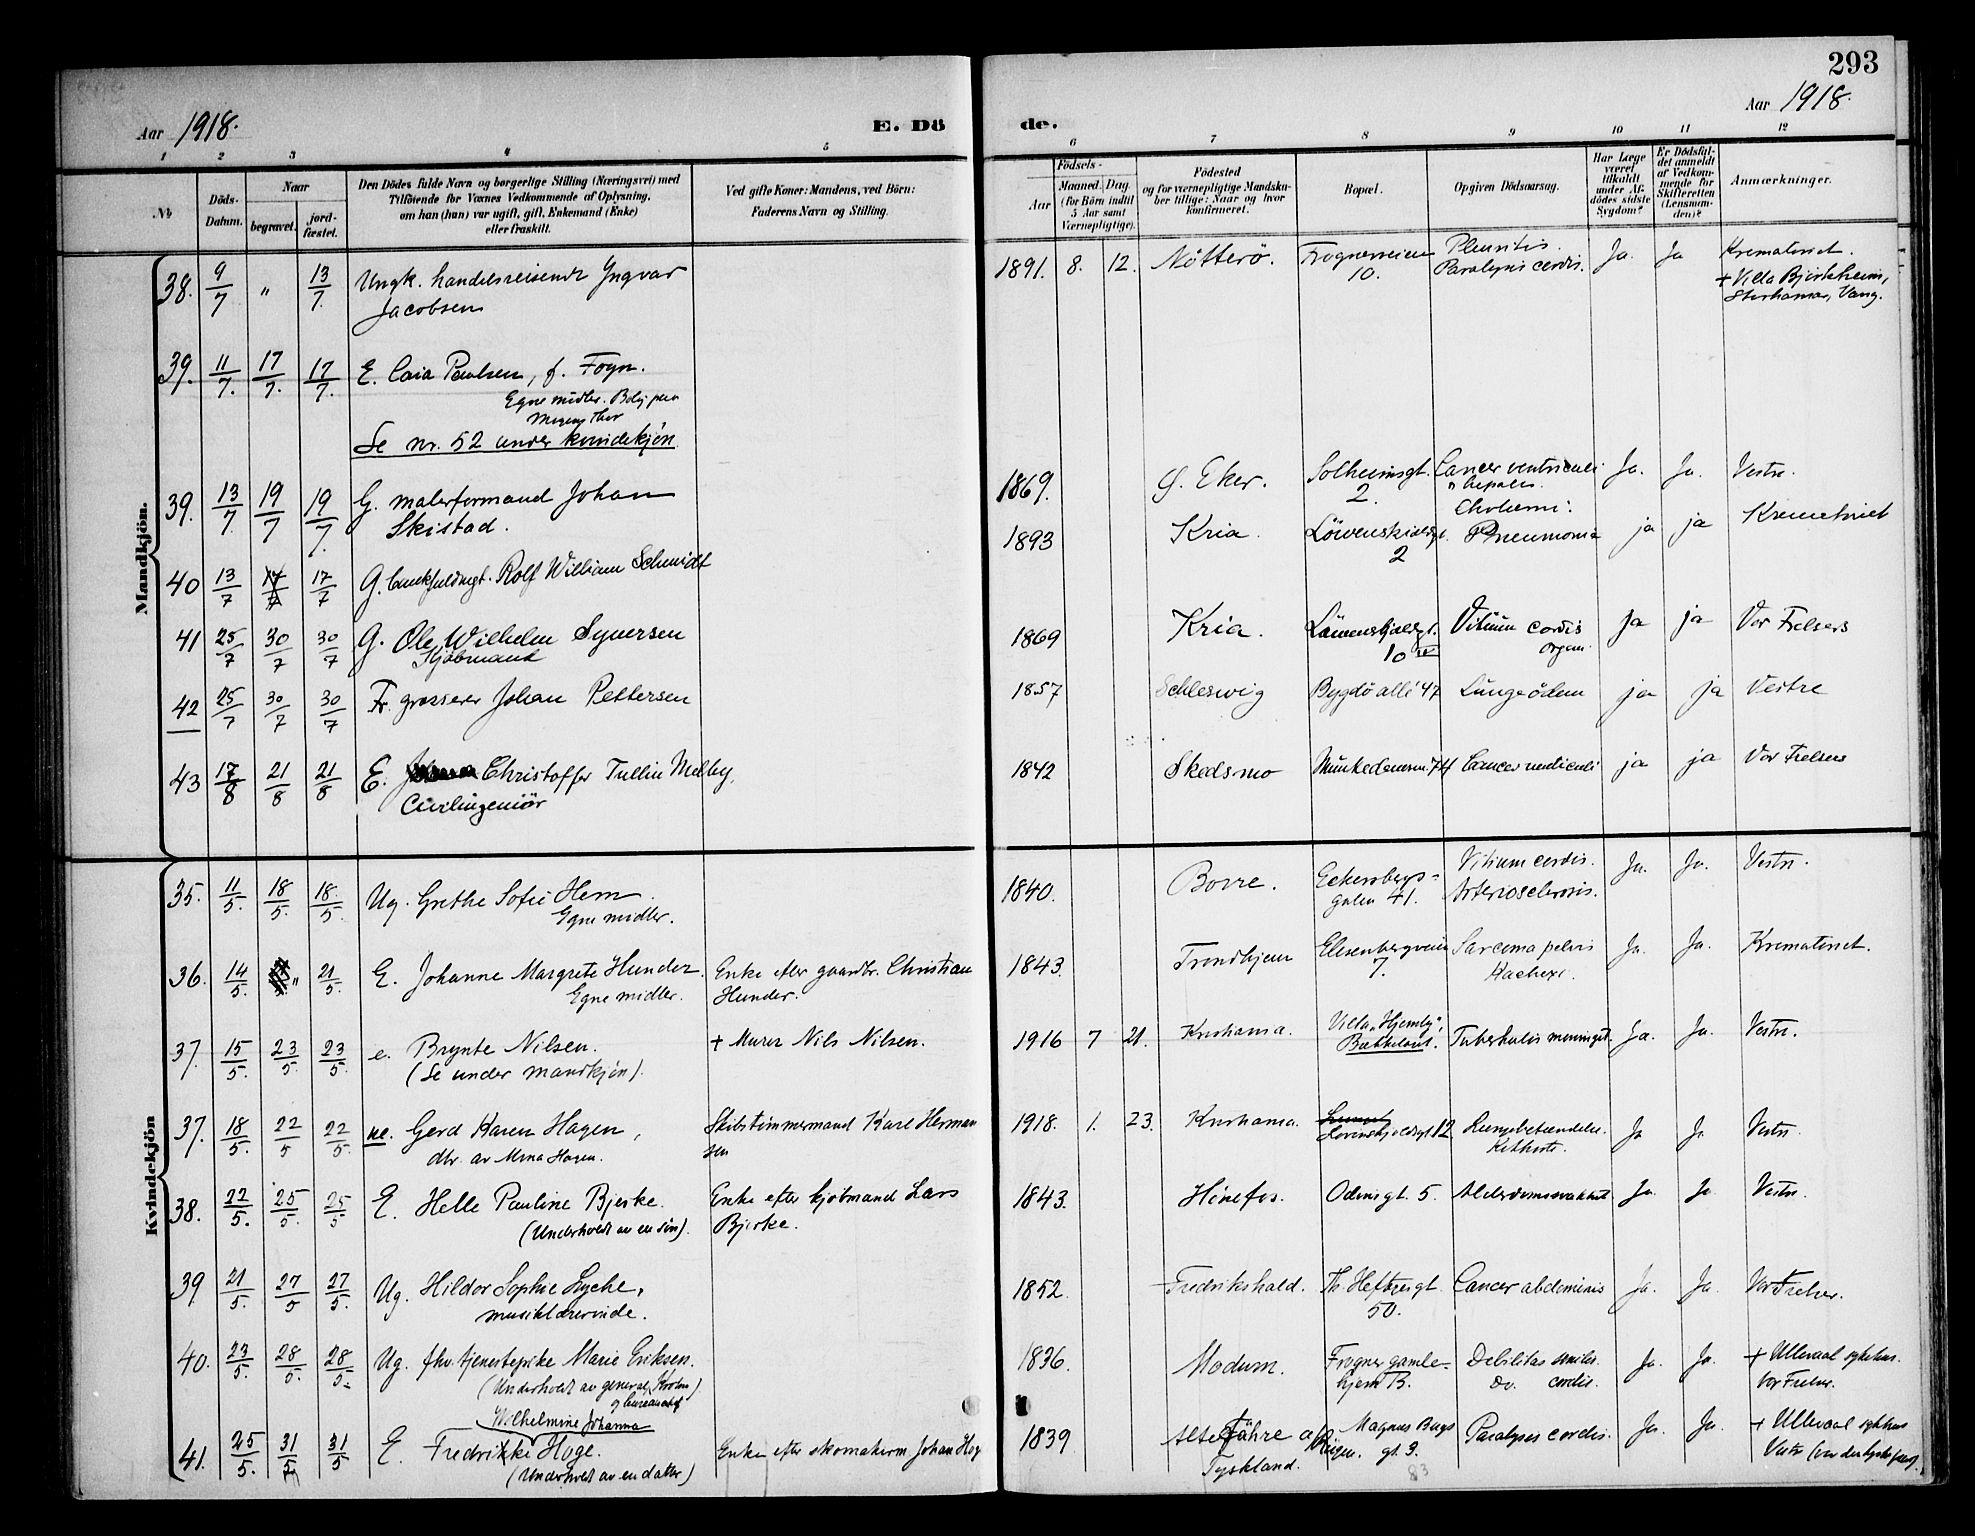 293
Aar 1918.
E. Dö
de.
Aar 1918.
1 2 3 4 5 6 7 8 9 10 11 12
No
Döds-Datum.
Naar
begravet.
jord-fæstet.
Den Dödes fulde Navn og borgerlige Stilling (Næringsvei) med
Tilföiende for Voxnes Vedkommende af Oplysning,
om han (hun) var ugift, gift, Enkemand (Enke)
eller fraskilt.
Ved gifte Koner: Mandens, ved Börn:
Faderens Navn og Stilling.
Födsels-
Aar
Maaned. Dag.
(for Börn indtil
5 Aar samt
Værnepligtige).
Födested
og for værnepligtige Mandska-
ber tillige: Naar og hvor
konfirmeret.
Bopæl.
Opgiven Dödsaarsag.
Har Læge
været
tilkaldt
under Af-
dödes sidste
Sygdom?
Er Dödsfal-
det anmeldt
af Vedkom-
mende for
Skifteretten
(Lensman-
den)?
Anmærkninger.
Mandkjön.
38. 9/7 " 13/7. Ungk. handelsreisende Yngvar
Jacobsen
1891. 8. 12. Nötterö. Frognerveien
10.
Pleuritis.
Paralysis cordis.
Ja. Ja Krematoriet.
+ Villa Bjerkheim,
Storhamar, Vang.
39. 11/7. 17/7. 17/7. E. Caia Paulsen, f. Fogn.
Egne midler.
Se nr. 52 under kvindekjön
39. 13/7 19/7 19/7. G. malerformand Johan
Skistad.
1869. Ø. Eker. Solheimsgt.
2.
Cancer ventriculi
Ja. Ja. Vestre.
40 13/7 17/7 17/7 G. bankfuldmgt. Rolf William Schmidt
1893 Kria. Löwenskioldgt.
2
Pneumonia ja ja Krematoriet
41 25/7 30/7 30/7 G. Ole Wilhelm Syversen
Kjöbmand
1869 Kria. Löwenskioldgt.
10 IV
Vitium cordis
organ.
Ja ja Vor Frelsers
42 25/7 30/7 30/7 Fr. grosserer Johan Pettersen
1857 Schleswig Bygdö allé 47 Lungeödem ja ja Vestre
43 17/8 21/8 21/8 E. Christoffer Tullin Melby.
Civilingeniör
1842 Skedsmo Munkedamsvn 74 Cancer ventriculi ja ja Vor Frelsers
Kvindekjön
35. 11/5. 18/5. 18/5. Ug. Grethe Sofie Hem.
Egne midler.
1840. Borre. Eckersbergs-
gaten 41.
Vitium cordis.
Arteriosclerosis.
Ja. Ja. Vestre.
36. 14/5. " 21/5. E. Johanne Margrete Hunder.
Egne midler.
Enke efter gaardbr. Christian
Hunder.
1843. Trondhjem Elisenbergveien
7.
Sarcoma pelvis
Kachexi.
Ja. Ja. Krematoriet.
37. 15/5. 23/5. 23/5. e. Brynte Nilsen.
(Se under mandkjön).
+ Murer Nils Nilsen.
1916 7 21. Kristiania. Villa "Hjemly",
Bækkelaget.
Tuberkuløs meningit. Ja. Ja. Vestre.
37. 18/5. 22/5 22/5. ue. Gerd Karen Hagen,
dtr. av Mina Hagen.
Skibstømmermand Karl Herman
sen
1918. 1. 23. Kristiania. Lövenskjoldsgt 12. Lungebetændelse.
Ja Ja Vestre.
38. 22/5. 25/5. 25/5 E. Helle Pauline Bjerke.
(Underholdt av en sön).
Enke efter kjöbmand Lars
Bjerke.
1843. Hönefos. Odinsgt. 5. Alderdomssvakhet Ja. Ja. Vestre.
39 21/5. 27/5 27/5. Ug. Hildor Sophie Lyche,
musiklærerinde.
1852. Fredrikshald. Th. Heftyesgt.
50.
Cancer abdominis Ja. Ja. Vor Frelser.
40. 23/5. 28/5. 28/5. Ug. fhv. tjenestepike Marie Eriksen.
(Underholdt av general
1836. Modum. Frogner gamle-
hjem B.
Debilitas senilis.
Do. cordis.
Ja. Ja. + Ullevaal sykehus.
Vor Frelser.
Wilhelmine Johanna
41. 25/5. 31/5 31/5 E. Fredrikke Hoge.
(Underholdt av en datter)
Enke efter skomakerm. Johan Hog
1839 Altefähre a/Rügen.
Tyskland.
Magnus Bergs
gt. 3.
83
Paralysis cordis. Ja. Ja. + Ullevaal sykehus